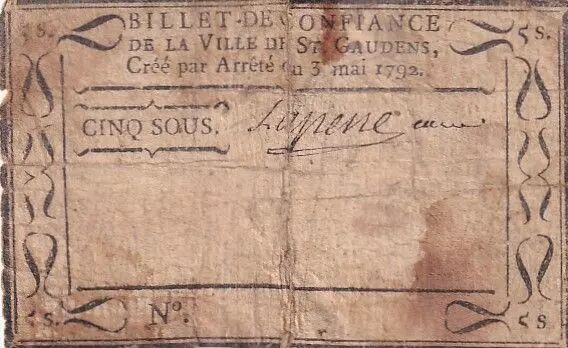 5 s. BILLET DE CONFIANCE 5 s.
DE LA VILLE DE ST. GAUDENS,
Créé par Arrêté du 3 mai 1792.
CINQ SOUS.
5 s. N°. 5 s